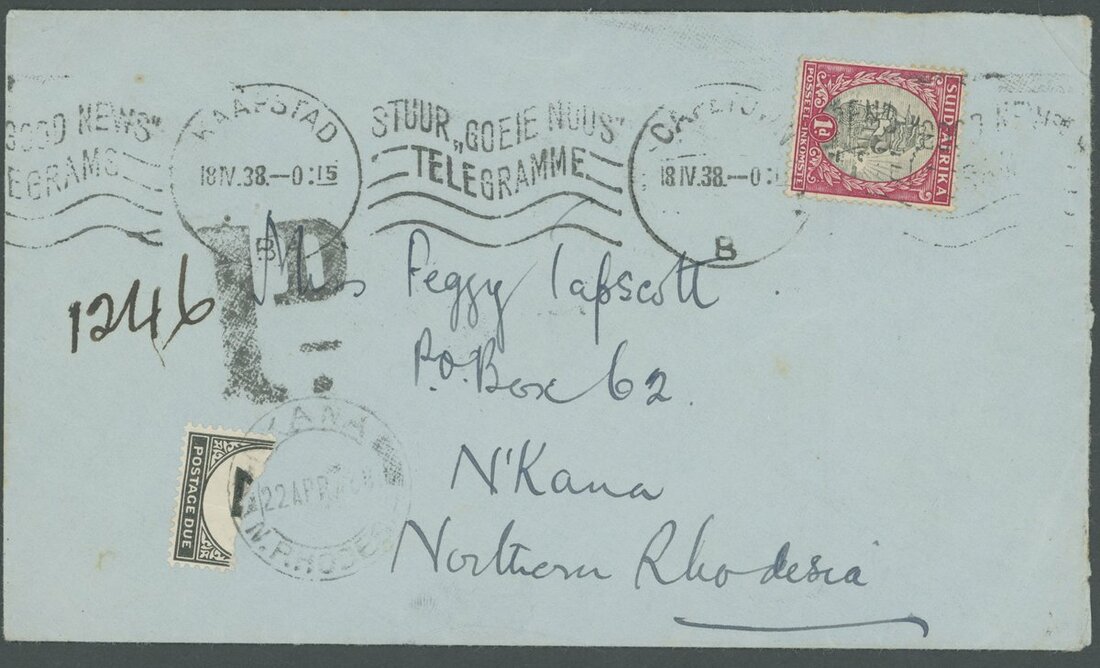 GOOD NEWS"
EGRAMS
KAAPSTAD
18 IV. 38. — 0:15
B
STUUR „GOEIE NUUS"
TELEGRAMME
18 IV. 38. — 0:1
B
SUID-AFRIKA
POSSEËL-INKOMSTE
1d
NEWS
1246
Miss Peggy Tapscott
P.O. Box 62
N'Kana
Northern Rhodesia
POSTAGE DUE
KANA
22 APR
N. RHODES